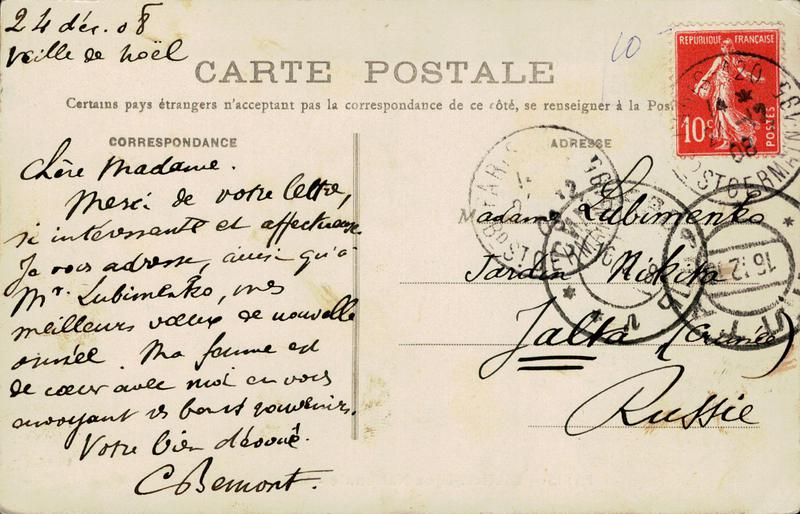 24 déc. 08
veille de noël
10
CARTE POSTALE
Certains pays étrangers n'acceptant pas la correspondance de ce côté, se renseigner à la Pos
CORRESPONDANCE
Chère Madame.
Merci de votre lettre,
si intéressante et affectueuse
Je vous adresse, ainsi qu'à
Mr. Lubimenko, mes
meilleurs vœux de nouvelle
année. Ma femme est
de cœur avec moi en vous
envoyant ses bons souvenirs.
Votre bien dévoué.
CBemont.
ADRESSE
Madame Lubimenko
Jardin Nikita
Jalta (Crimée)
Russie
REPUBLIQUE FRANÇAISE
10c
POSTES
PARIS
08
16.12